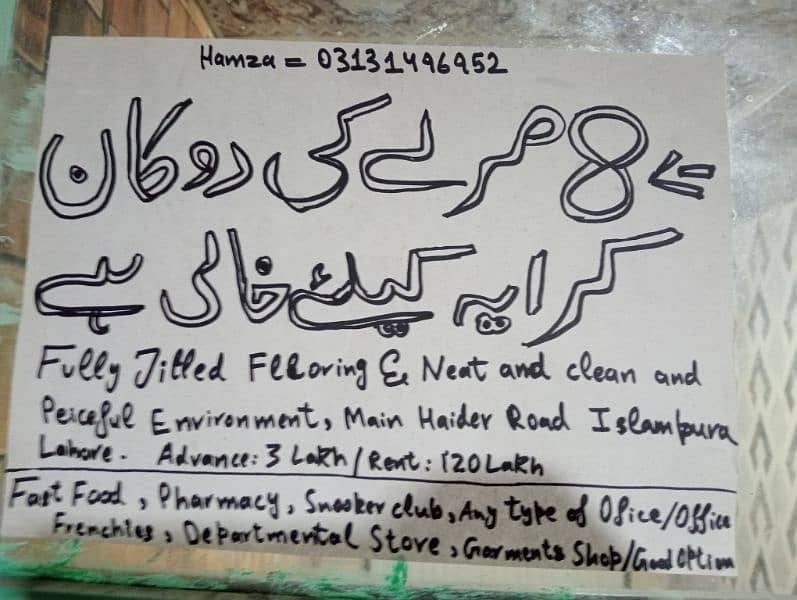 Hamza = 03131496952
⇐ 8 مرلے کی دوکان
کرایہ کیلئے خالی ہے
Fully Jitled Flloring & Neat and clean and
Peiceful Environment, Main Haider Road Islampura
Lahore. Advance: 3 Lakh / Rent: 120 Lakh
Fast Food, Pharmacy, Snooker club, Any type of Ofice/Office
Frenchies, Departmental Store, Garments Shop/Good Option